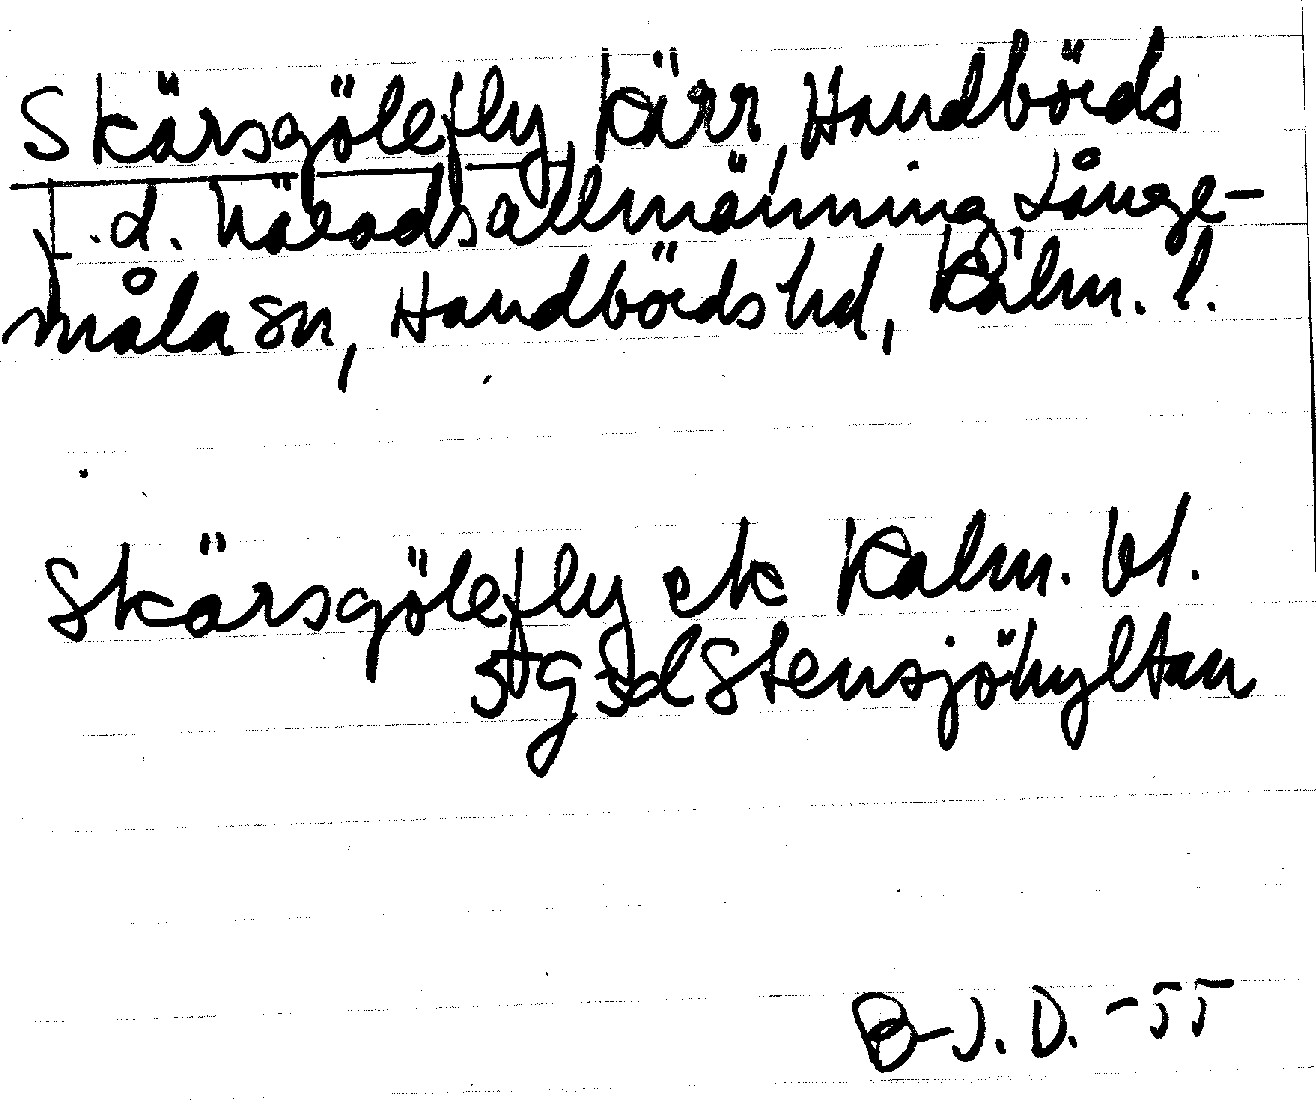 Skärsgölefly, kärr, Handbörds
f.d. häradsallmänning, Långe-
måla sn, Handbörds hd, Kalm. l.
Skärsgölefly ek Kalm. bl.
5 g 5d Stensjöhyltan
B-J.D. -55